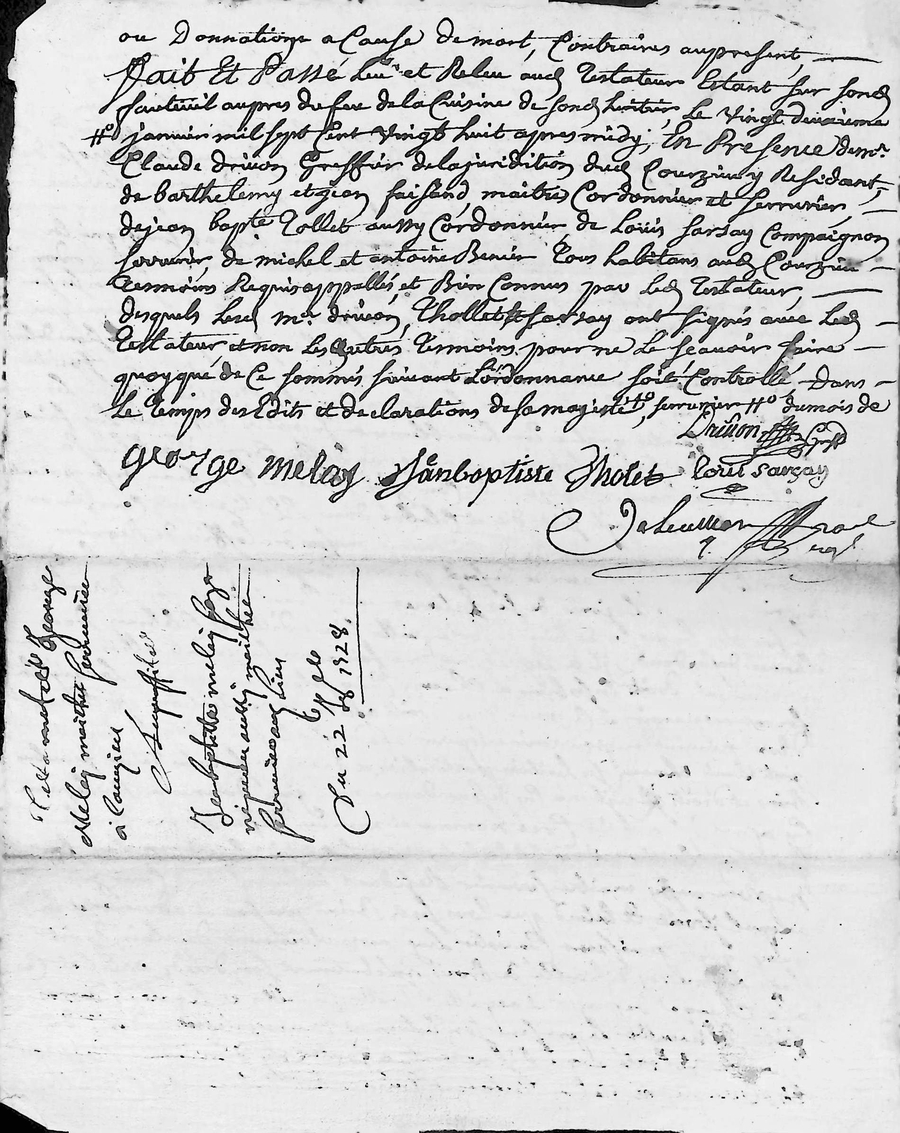 ou Donnations a Cause de mort, Contraires au present,
Fait Et Passé Leu et Releu aud Testateur Estant sur sond
fauteuil aupres du feu de la Cuisine de sond heritier, Le Vingt deuxieme
#o janvier mil sept Cent Vingt huit apres midy, En Presence de mr
Claude drivon Greffier de la juridition dud Courzieu y Residant,
de barthelemy et jean faisand, maitre Cordonnier et serrurier,
de jean bapte Tollet aussy Cordonnier de Loüis sarsay Compaignon
serrurier de michel et antoine Benier Tous habitans aud Courzieu
Temoins Requis appellés, et Bien Connus par Led Testateur,
desquels Lesd mr drivon, Thollet et sarsay ont signés avec Led
Testateur et non Les autres Temoins pour ne Le scavoir faire
quoyque de Ce sommés suivant L'ordonnance soit Controllé Dans
Le Temps des Edits et declarations de sa majesté, serrurier #o du mois de
Drivon Greff
george melay Jan baptiste Tholet louis sarsay
Testament de George
Melay maitre serrurier
a Courzieu
Jean baptiste melay
aussy maitre
serrurier aud lieu
Du 22 1728